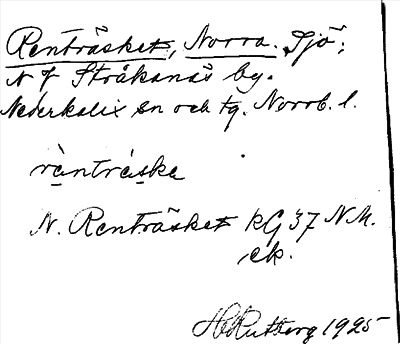 Renträsket, Norra. Sjö;
N f Stråkanäs by.
Nederkalix sn och tg. Norrb. l.
ràntràske
N. Renträsket RG 37 N.M.
ek.
H Rutberg 1925